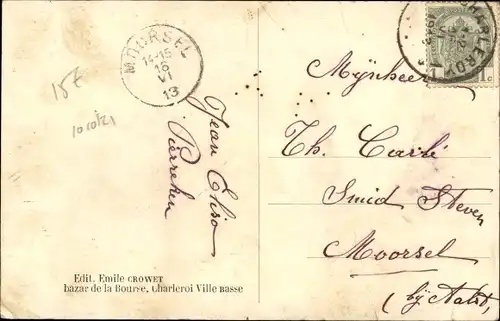 MOORSEL
14-15
16
VI
13
CHARLEROY
1
1c
15E
Jean Elise
Pierreken
Mijnheer
Th. Carlé
Smid Steven
Moorsel
(bij Aalst)
Edit. Emile CROWET
bazar de la Bourse, Charleroi Ville Basse